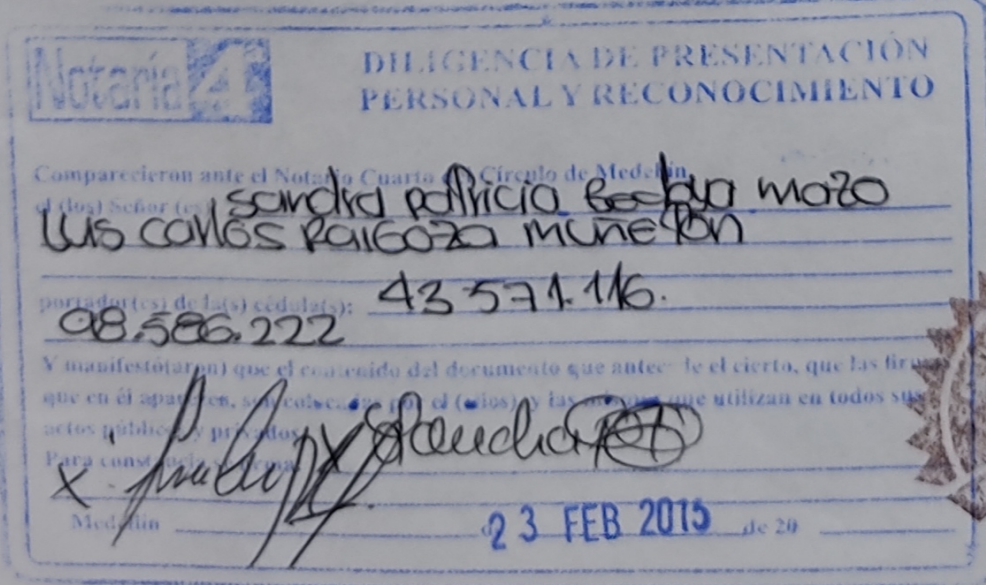 Notaría 4
DILIGENCIA DE PRESENTACIÓN
PERSONAL Y RECONOCIMIENTO
Comparecieron ante el Notario Cuarto Círculo de Medellín
el (los) Señor (es) Sandra Patricia mazo
Luis Carlos Raigoza muñeton
portador(es) de la(s) cédula(s): 43571.116.
98.586.222
Y manifestó(aron) que el contenido del documento que antecede el cierto, que las
que en él aparecen, son colocadas por el (ellos) y las que utilizan en todos sus
actos públicos y privados
Para constancia
Medellín 23 FEB 2015 de 20